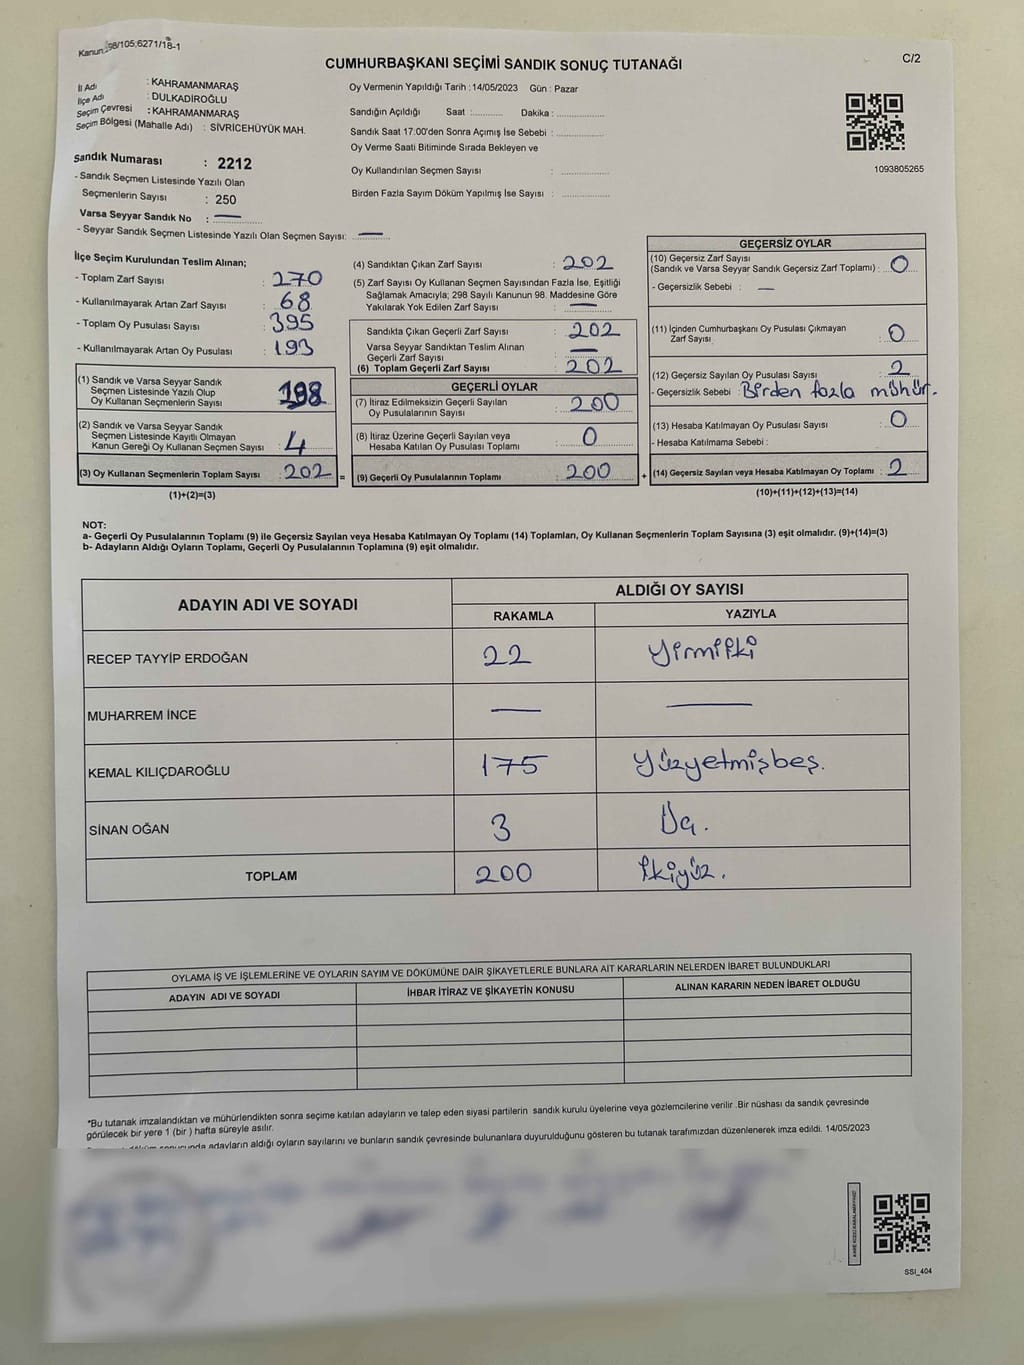 Kanun:298/105,6271/18-1
CUMHURBAŞKANI SEÇİMİ SANDIK SONUÇ TUTANAĞI
C/2
İl Adı : KAHRAMANMARAŞ
İlçe Adı : DULKADİROĞLU
Seçim Çevresi : KAHRAMANMARAŞ
Seçim Bölgesi (Mahalle Adı) : SİVRİCEHÜYÜK MAH.
Oy Vermenin Yapıldığı Tarih :14/05/2023 Gün : Pazar
Sandığın Açıldığı Saat :.......... Dakika :..............
Sandık Saat 17:00'den Sonra Açımış İse Sebebi :..............
Oy Verme Saati Bitiminde Sırada Bekleyen ve
Oy Kullandırılan Seçmen Sayısı : ..............
Birden Fazla Sayım Döküm Yapılmış İse Sayısı : ..............
1093805265
Sandık Numarası : 2212
- Sandık Seçmen Listesinde Yazılı Olan
Seçmenlerin Sayısı : 250
Varsa Seyyar Sandık No : —
- Seyyar Sandık Seçmen Listesinde Yazılı Olan Seçmen Sayısı: —
İlçe Seçim Kurulundan Teslim Alınan;
- Toplam Zarf Sayısı : 270
- Kullanılmayarak Artan Zarf Sayısı : 68
- Toplam Oy Pusulası Sayısı : 395
- Kullanılmayarak Artan Oy Pusulası : 193
(1) Sandık ve Varsa Seyyar Sandık
Seçmen Listesinde Yazılı Olup
Oy Kullanan Seçmenlerin Sayısı : 198
(2) Sandık ve Varsa Seyyar Sandık
Seçmen Listesinde Kayıtlı Olmayan
Kanun Gereği Oy Kullanan Seçmen Sayısı : 4
(3) Oy Kullanan Seçmenlerin Toplam Sayısı : 202
(1)+(2)=(3)
(4) Sandıktan Çıkan Zarf Sayısı : 202
(5) Zarf Sayısı Oy Kullanan Seçmen Sayısından Fazla İse, Eşitliği
Sağlamak Amacıyla; 298 Sayılı Kanunun 98. Maddesine Göre
Yakılarak Yok Edilen Zarf Sayısı : —
Sandıkta Çıkan Geçerli Zarf Sayısı : 202
Varsa Seyyar Sandıktan Teslim Alınan
Geçerli Zarf Sayısı : —
(6) Toplam Geçerli Zarf Sayısı : 202
GEÇERLİ OYLAR
(7) İtiraz Edilmeksizin Geçerli Sayılan
Oy Pusulalarının Sayısı : 200
(8) İtiraz Üzerine Geçerli Sayılan veya
Hesaba Katılan Oy Pusulası Toplamı : 0
= (9) Geçerli Oy Pusulalarının Toplamı : 200
GEÇERSİZ OYLAR
(10) Geçersiz Zarf Sayısı
(Sandık ve Varsa Seyyar Sandık Geçersiz Zarf Toplamı) : 0
- Geçersizlik Sebebi : —
(11) İçinden Cumhurbaşkanı Oy Pusulası Çıkmayan
Zarf Sayısı : 0
(12) Geçersiz Sayılan Oy Pusulası Sayısı : 2
- Geçersizlik Sebebi : Birden fazla mühür.
(13) Hesaba Katılmayan Oy Pusulası Sayısı : 0
- Hesaba Katılmama Sebebi :
+ (14) Geçersiz Sayılan veya Hesaba Katılmayan Oy Toplamı : 2
(10)+(11)+(12)+(13)=(14)
NOT:
a- Geçerli Oy Pusulalarının Toplamı (9) ile Geçersiz Sayılan veya Hesaba Katılmayan Oy Toplamı (14) Toplamları, Oy Kullanan Seçmenlerin Toplam Sayısına (3) eşit olmalıdır. (9)+(14)=(3)
b- Adayların Aldığı Oyların Toplamı, Geçerli Oy Pusulalarının Toplamına (9) eşit olmalıdır.
ADAYIN ADI VE SOYADI
ALDIĞI OY SAYISI
RAKAMLA YAZIYLA
RECEP TAYYİP ERDOĞAN 22 Yirmiiki
MUHARREM İNCE — —
KEMAL KILIÇDAROĞLU 175 Yüzyetmişbeş.
SİNAN OĞAN 3 Üç.
TOPLAM 200 İkiyüz.
OYLAMA İŞ VE İŞLEMLERİNE VE OYLARIN SAYIM VE DÖKÜMÜNE DAİR ŞİKAYETLERLE BUNLARA AİT KARARLARIN NELERDEN İBARET BULUNDUKLARI
ADAYIN ADI VE SOYADI İHBAR İTİRAZ VE ŞİKAYETİN KONUSU ALINAN KARARIN NEDEN İBARET OLDUĞU
*Bu tutanak imzalandıktan ve mühürlendikten sonra seçime katılan adayların ve talep eden siyasi partilerin sandık kurulu üyelerine veya gözlemcilerine verilir .Bir nüshası da sandık çevresinde
görülecek bir yere 1 (bir ) hafta süreyle asılır.
adayların aldığı oyların sayılarını ve bunların sandık çevresinde bulunanlara duyurulduğunu gösteren bu tutanak tarafımızdan düzenlenerek imza edildi. 14/05/2023
SSI_404